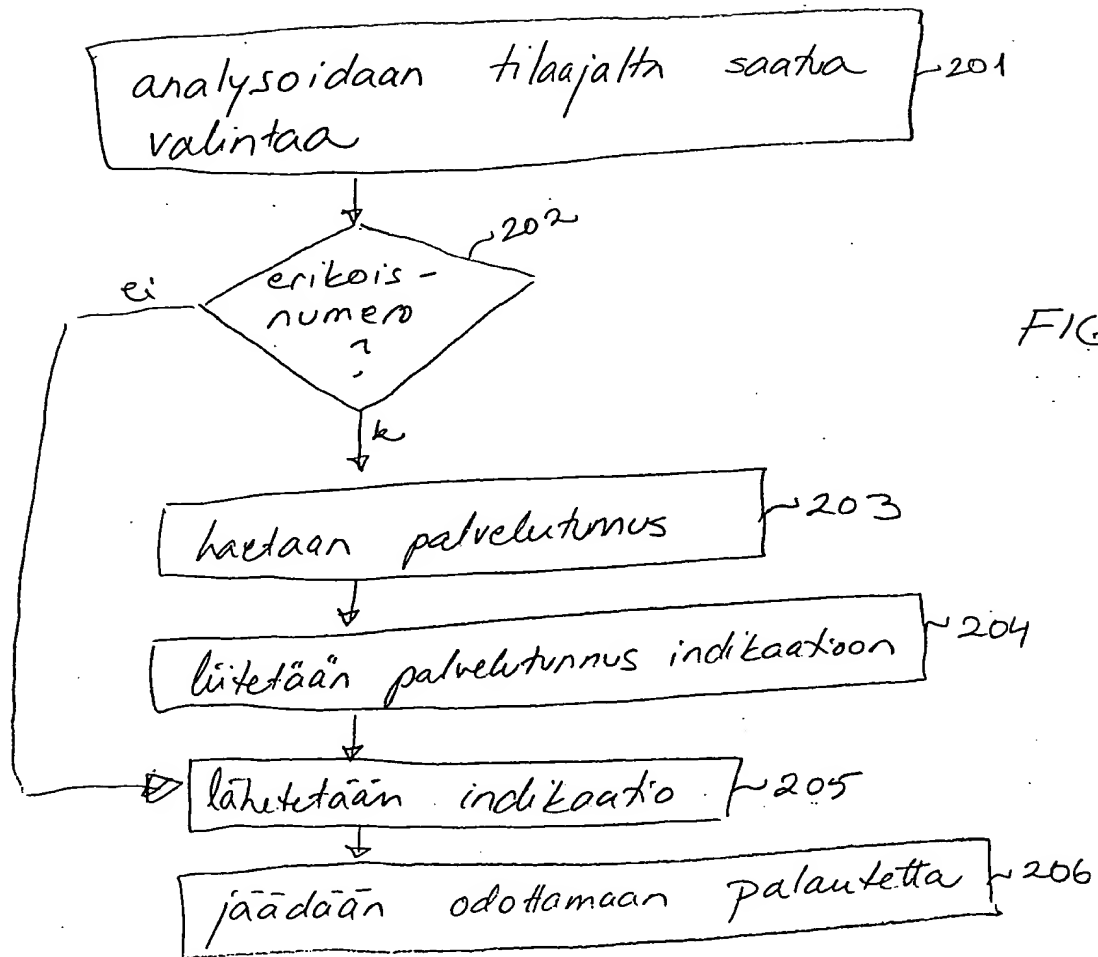 analysoidaan tilaajalta saatua 201
valintaa
202
ei
erikois-
numero
?
k
FIG
haetaan palvelutunnus 203
liitetään palvelutunnus indikaatioon 204
lähetetään indikaatio 205
jäädään odottamaan palautetta 206